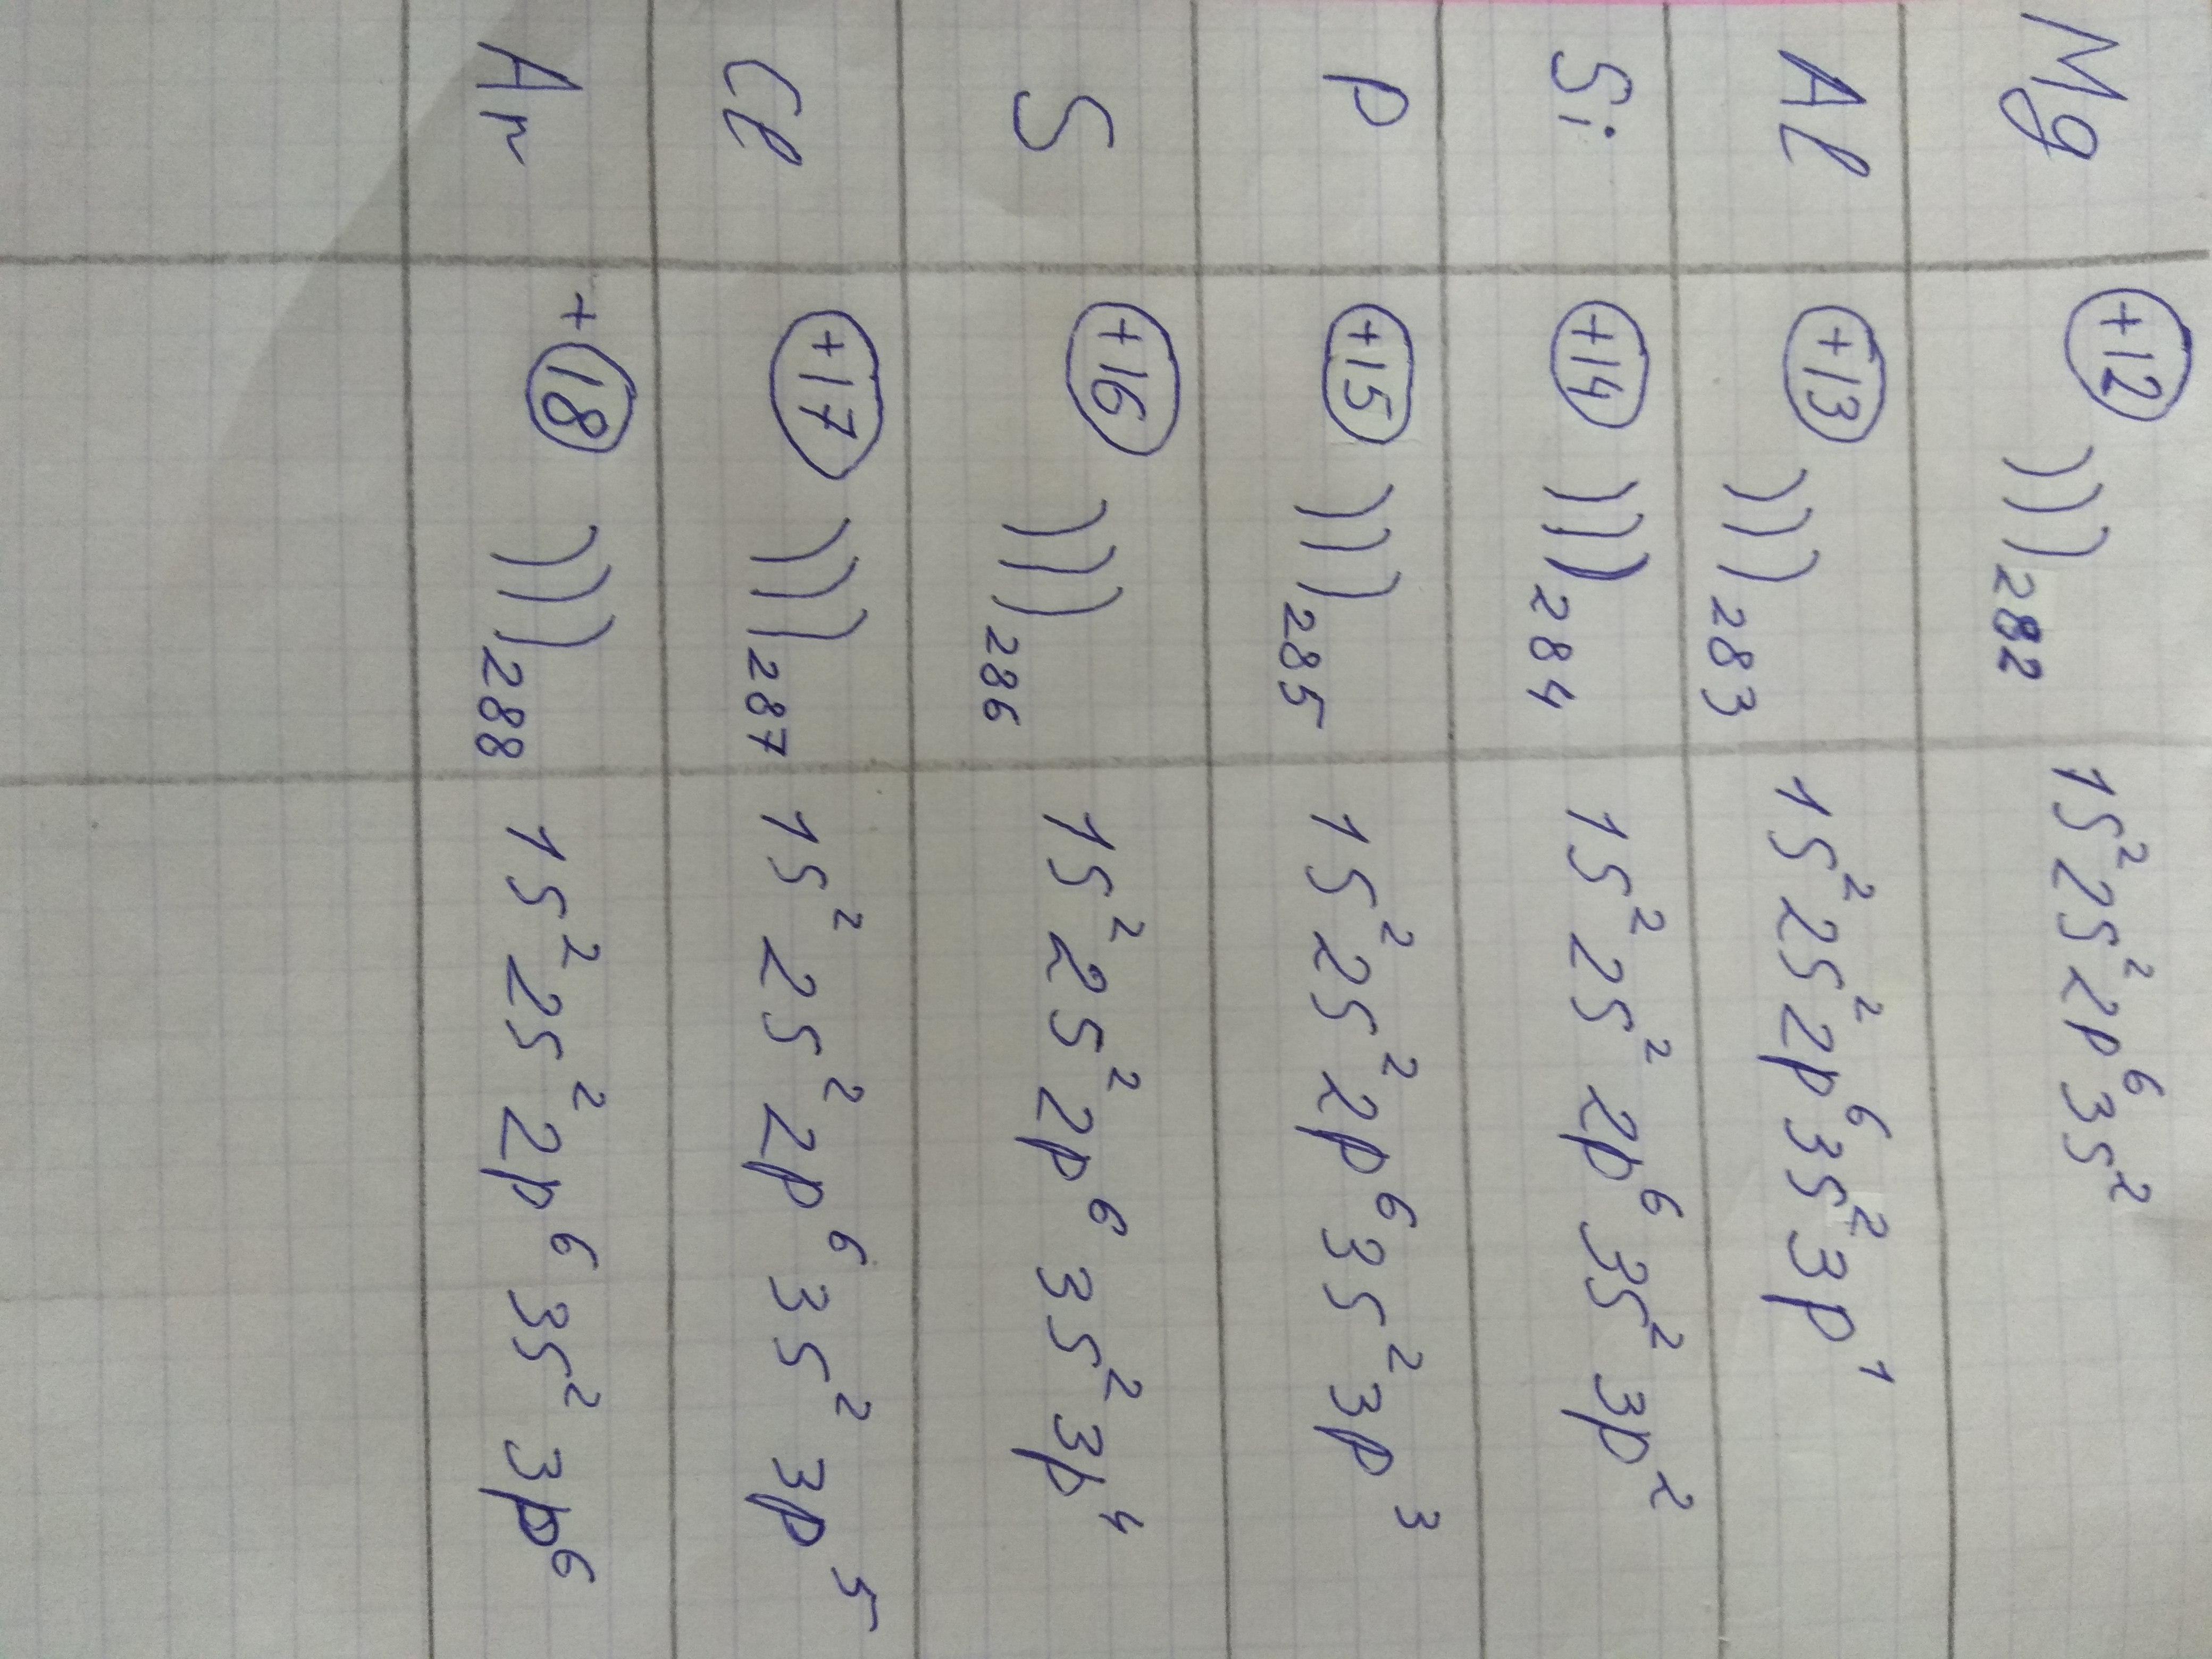 Mg +12 ))) 282 1s² 2s² 2p⁶ 3s²
Al +13 ))) 283 1s² 2s² 2p⁶ 3s² 3p¹
Si +14 ))) 284 1s² 2s² 2p⁶ 3s² 3p²
P +15 ))) 285 1s² 2s² 2p⁶ 3s² 3p³
S +16 ))) 286 1s² 2s² 2p⁶ 3s² 3p⁴
Cl +17 ))) 287 1s² 2s² 2p⁶ 3s² 3p⁵
Ar +18 ))) 288 1s² 2s² 2p⁶ 3s² 3p⁶